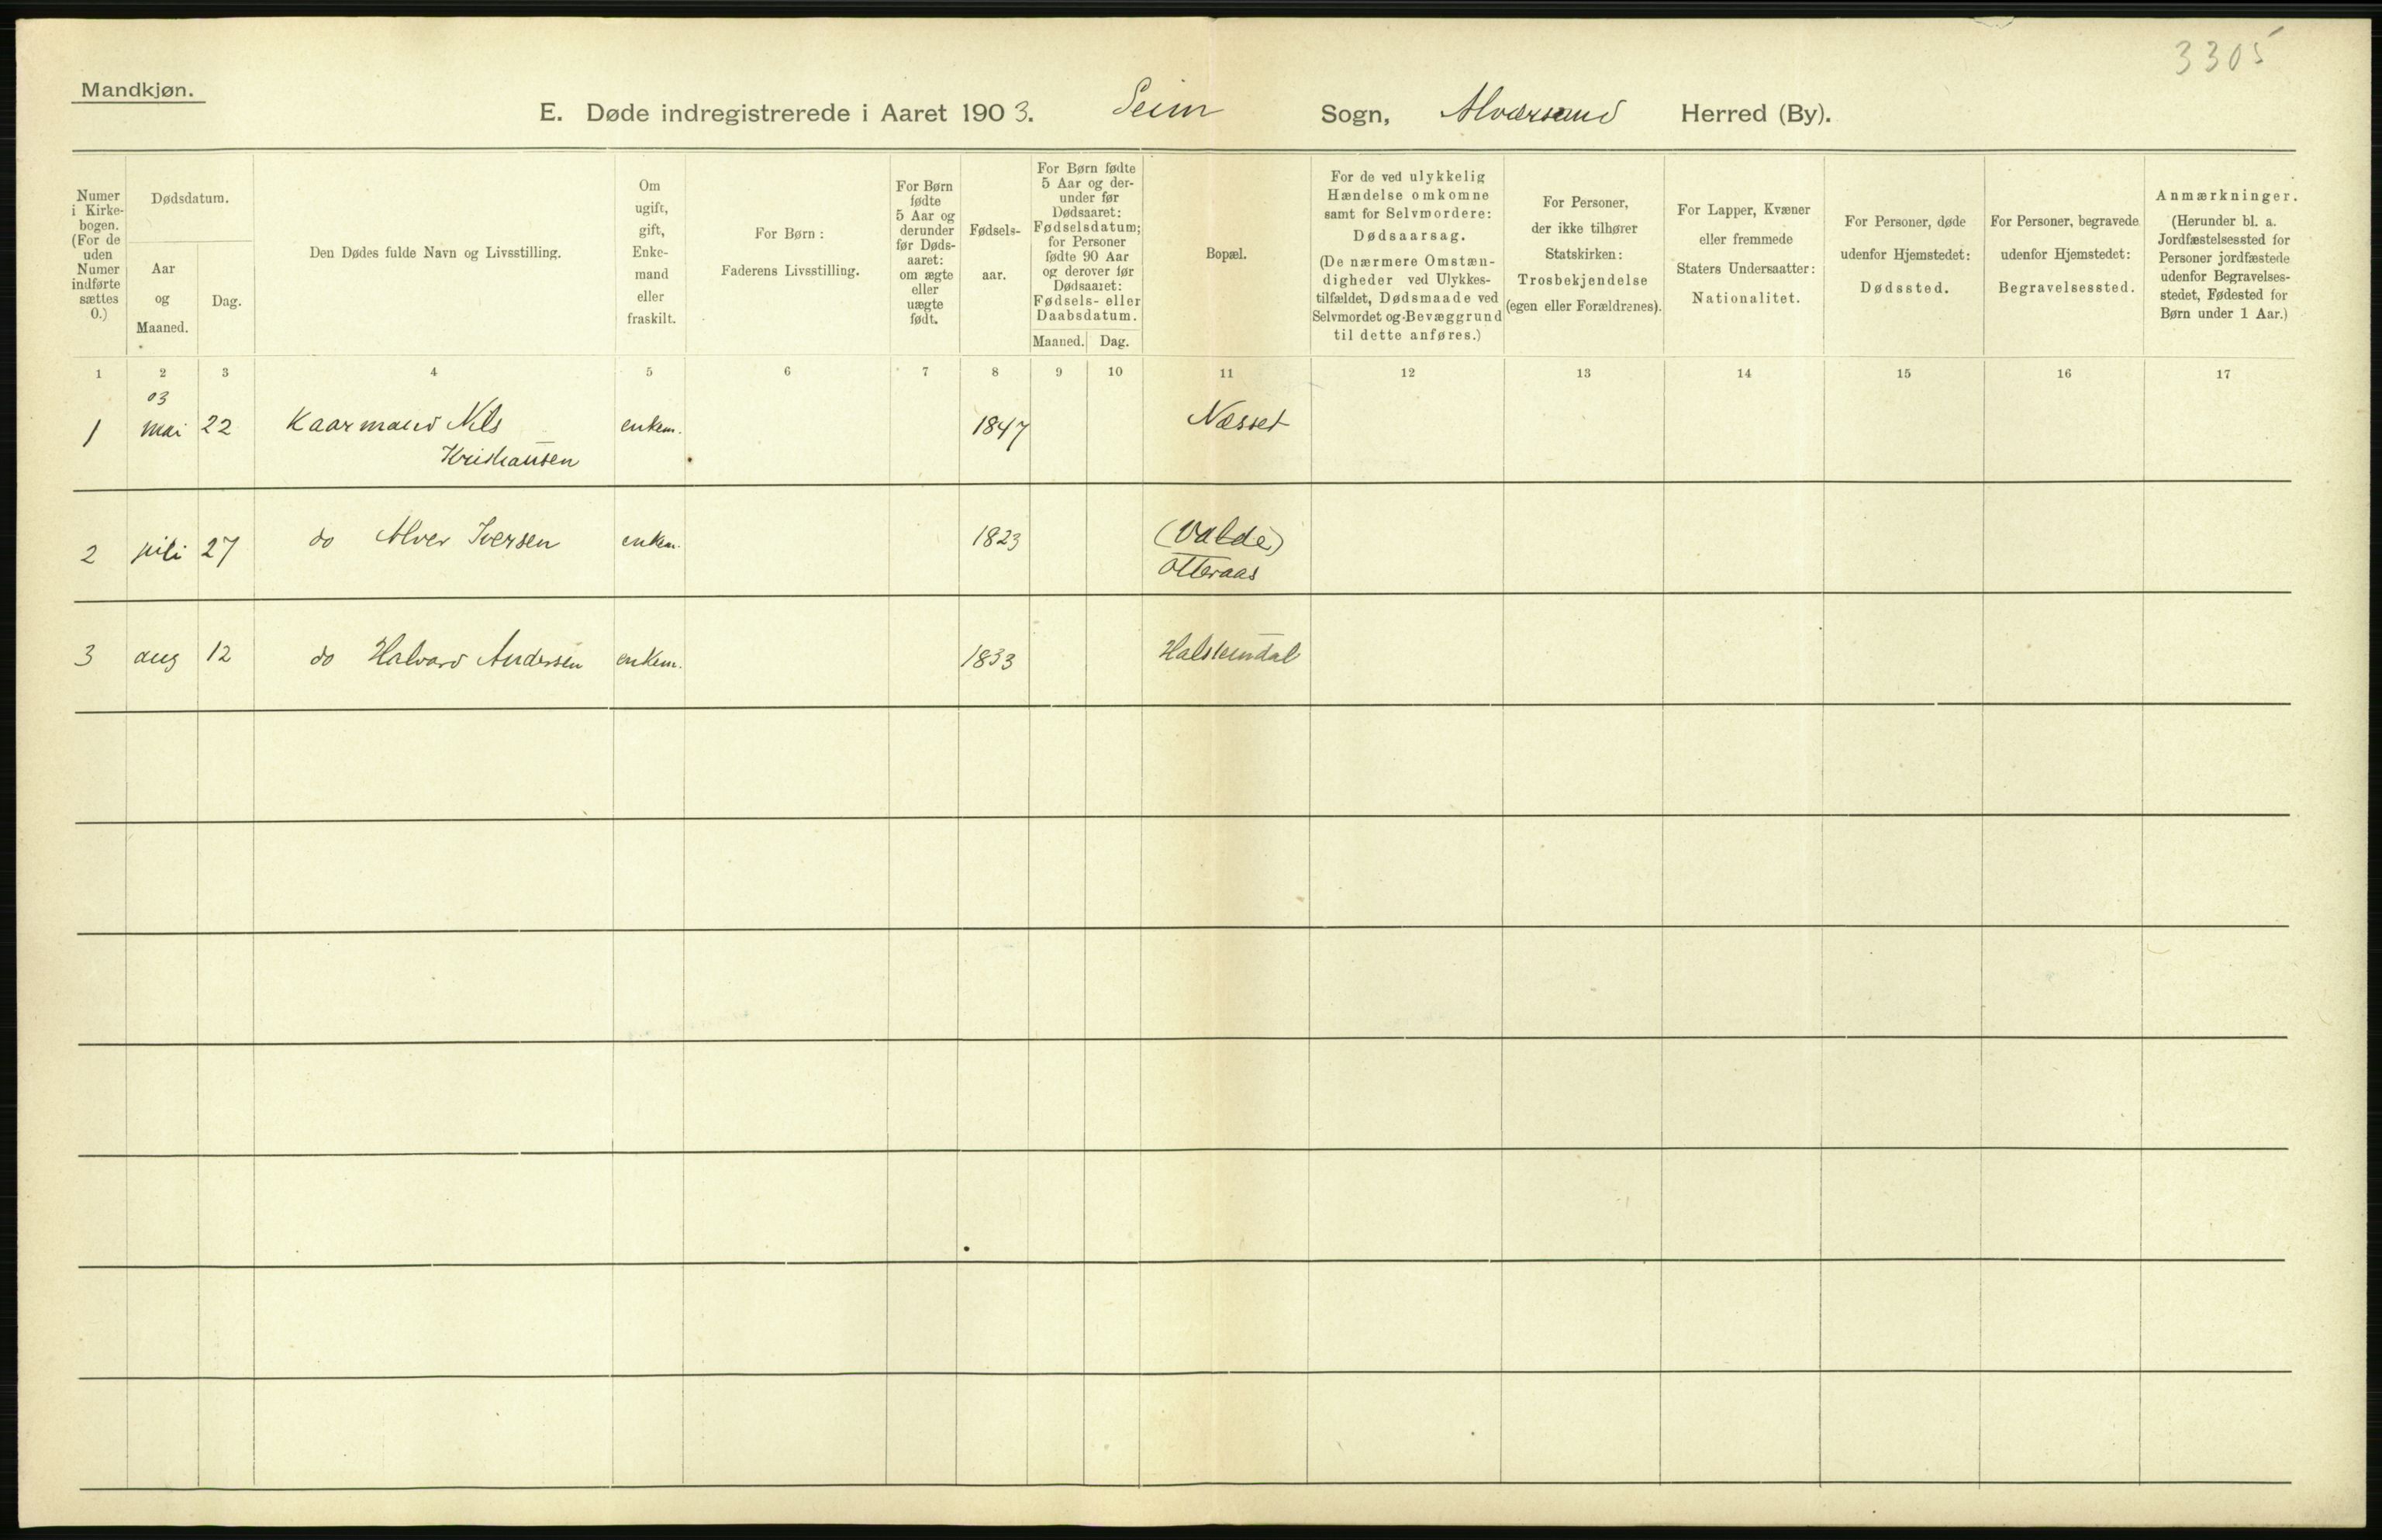 3305
Mandkjøn.
E. Døde indregistrerede i Aaret 1903. Seim Sogn, Alversund Herred (By).
Numer i Kirkebogen. (For de uden Numer indførte sættes 0.)
Dødsdatum.
Aar og Maaned.
Dag.
Den Dødes fulde Navn og Livsstilling.
Om ugift, gift, Enkemand eller fraskilt.
For Børn: Faderens Livsstilling.
For Børn fødte 5 Aar og derunder før Dødsaaret: om ægte eller uægte født.
Fødselsaar.
For Børn fødte 5 Aar og derunder før Dødsaaret: Fødselsdatum; for Personer fødte 90 Aar og derover før Dødsaaret: Fødsels- eller Daabsdatum.
Maaned. Dag.
Bopæl.
For de ved ulykkelig Hændelse omkomne samt for Selvmordere: Dødsaarsag. (De nærmere Omstændigheder ved Ulykkestilfældet, Dødsmaade ved Selvmordet og Bevæggrund til dette anføres.)
For Personer, der ikke tilhører Statskirken: Trosbekjendelse (egen eller Forældrenes).
For Lapper, Kvæner eller fremmede Staters Undersaatter: Nationalitet.
For Personer, døde udenfor Hjemstedet: Dødssted.
For Personer, begravede udenfor Hjemstedet: Begravelsessted.
Anmærkninger. (Herunder bl. a. Jordfæstelsessted for Personer jordfæstede udenfor Begravelsesstedet, Fødested for Børn under 1 Aar.)
1 2 3 4 5 6 7 8 9 10 11 12 13 14 15 16 17
03
1 mai 22 Kaarmand Nils enkem. 1847 Næsset
Kristiansen
2 juli 27 do Alver Iversen enkem. 1823 (Valde)
Otteraas
3 aug 12 do Halvard Andersen enkem. 1833